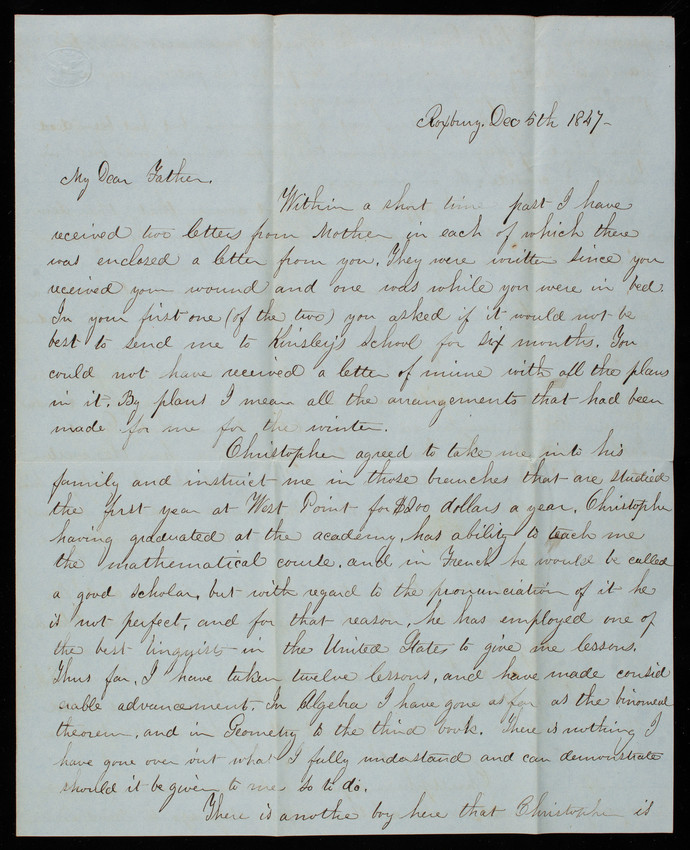 Roxbury. Dec 5th 1847-
My Dear Father.
Within a short time past I have
received two letters from Mother in each of which there
was enclosed a letter from you. They were written since you
received your wound and one was while you were in bed.
In your first one (of the two) you asked if it would not be
best to send me to Kinsley's School for six months. You
could not have received a letter of mine with all the plans
in it. By plans I mean all the arrangements that had been
made for me for the winter.
Christopher agreed to take me into his
family and instruct me in those branches that are studied
the first year at West Point for $200 dollars a year. Christopher
having graduated at the academy, has ability to teach me
the mathematical course. and in French he would be called
a good scholar. but with regard to the pronunciation of it he
is not perfect, and for that reason, he has employed one of
the best linguists in the United States to give me lessons.
Thus far, I have taken twelve lessons, and have made consid
erable advancement. In Algebra I have gone as far as the binomial
theorem, and in Geometry to the third book. There is nothing I
have gone over but what I fully understand and can demonstrate
should it be given to me so to do.
There is another boy here that Christopher is